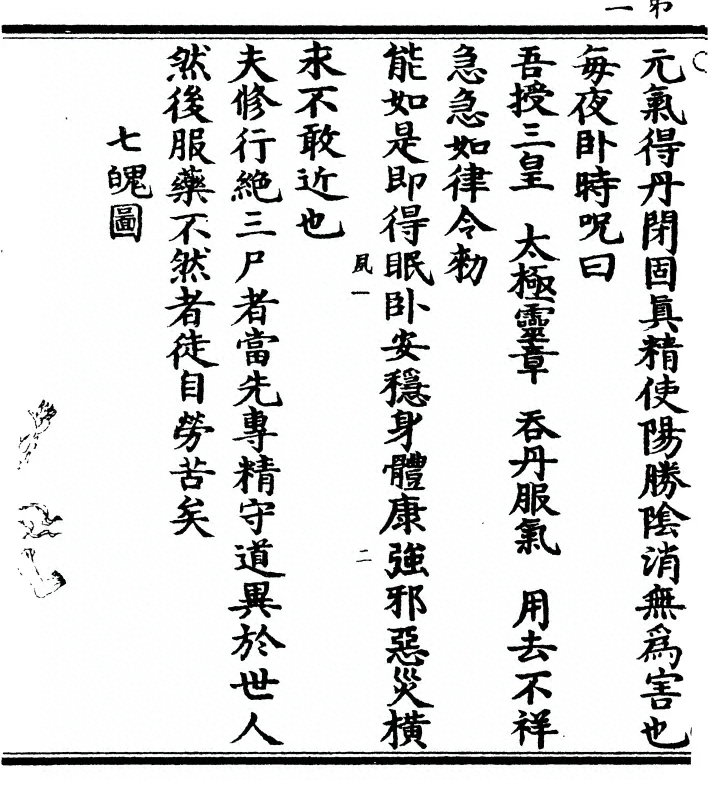 元氣得丹閉固眞精使陽勝陰消無爲害也
每夜卧時呪曰
吾授三皇　太極靈章　吞丹服氣　用去不祥
急急如律令勑
能如是即得眠卧安穩身體康強邪惡災橫
夙一
二
求不敢近也
夫修行絶三尸者當先專精守道異於世人
然後服藥不然者徒自勞苦矣
七魄圖